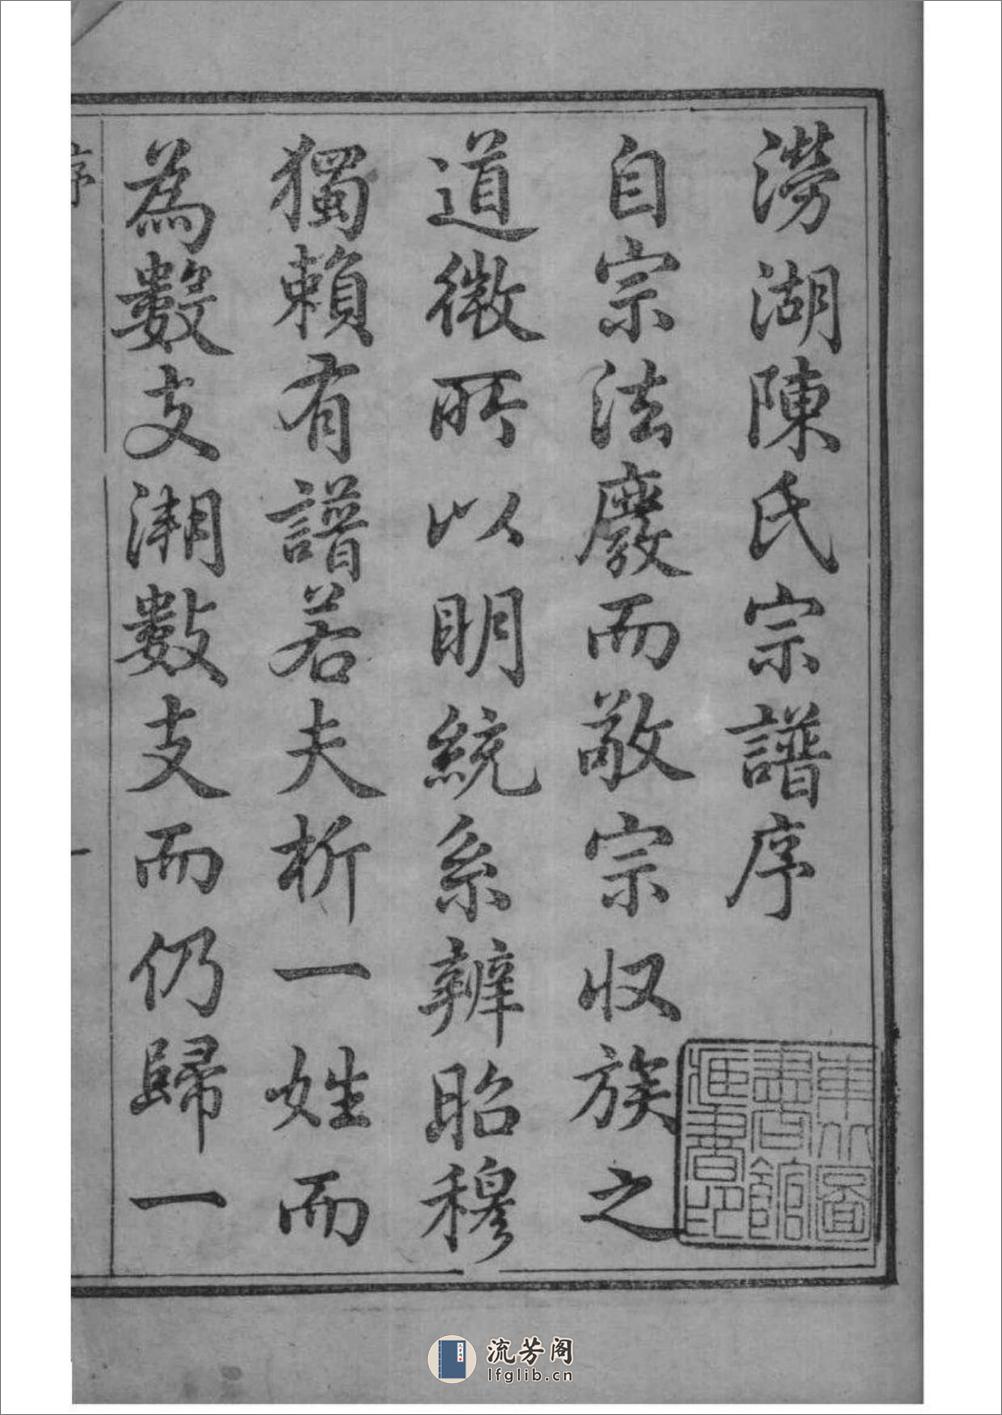 澇湖陳氏宗譜序
自宗法廢而敬宗收族之
道微所以明統系辨昭穆
獨賴有譜若夫析一姓而
為數支溯數支而仍歸一
序
一
東北圖
書館
藏書印
流芳阁
lfglib.cn